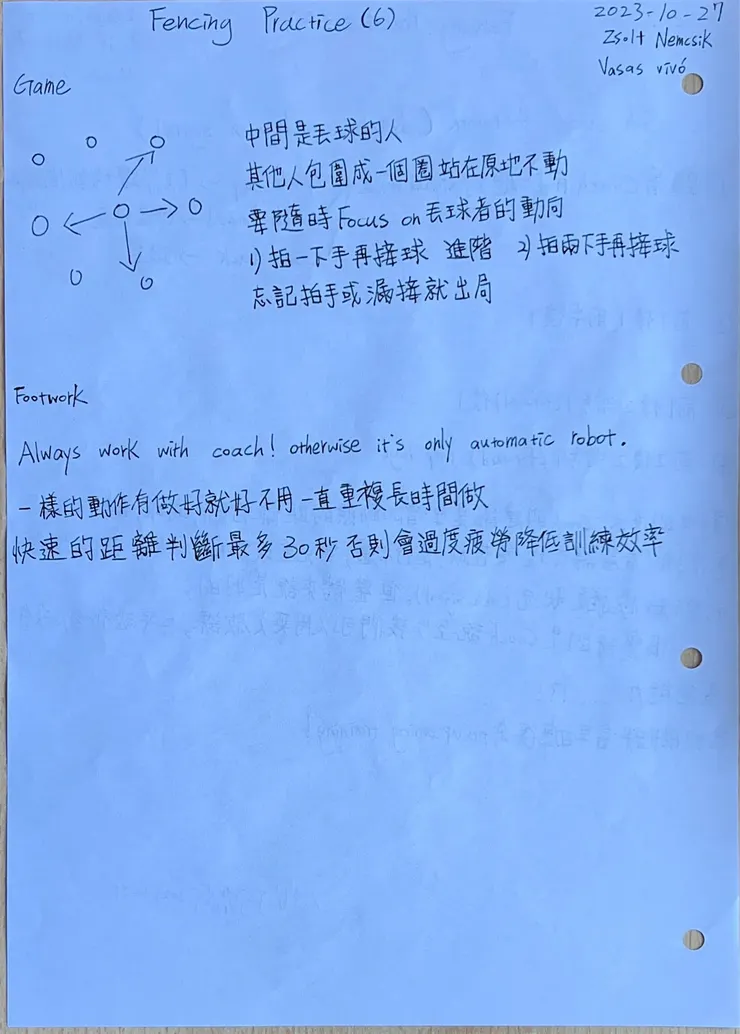 Fencing Practice (6)
2023-10-27
Zsolt Nemcsik
Vasas vívó
Game
中間是丟球的人
其他人包圍成一個圈站在原地不動
要隨時 Focus on 丟球者的動向
1) 拍一下手再接球 進階 2) 拍兩下手再接球
忘記拍手或漏接就出局
Footwork
Always work with coach! otherwise it's only automatic robot.
一樣的動作有做好就好不用一直重複長時間做
快速的距離判斷最多30秒否則會過度疲勞降低訓練效率